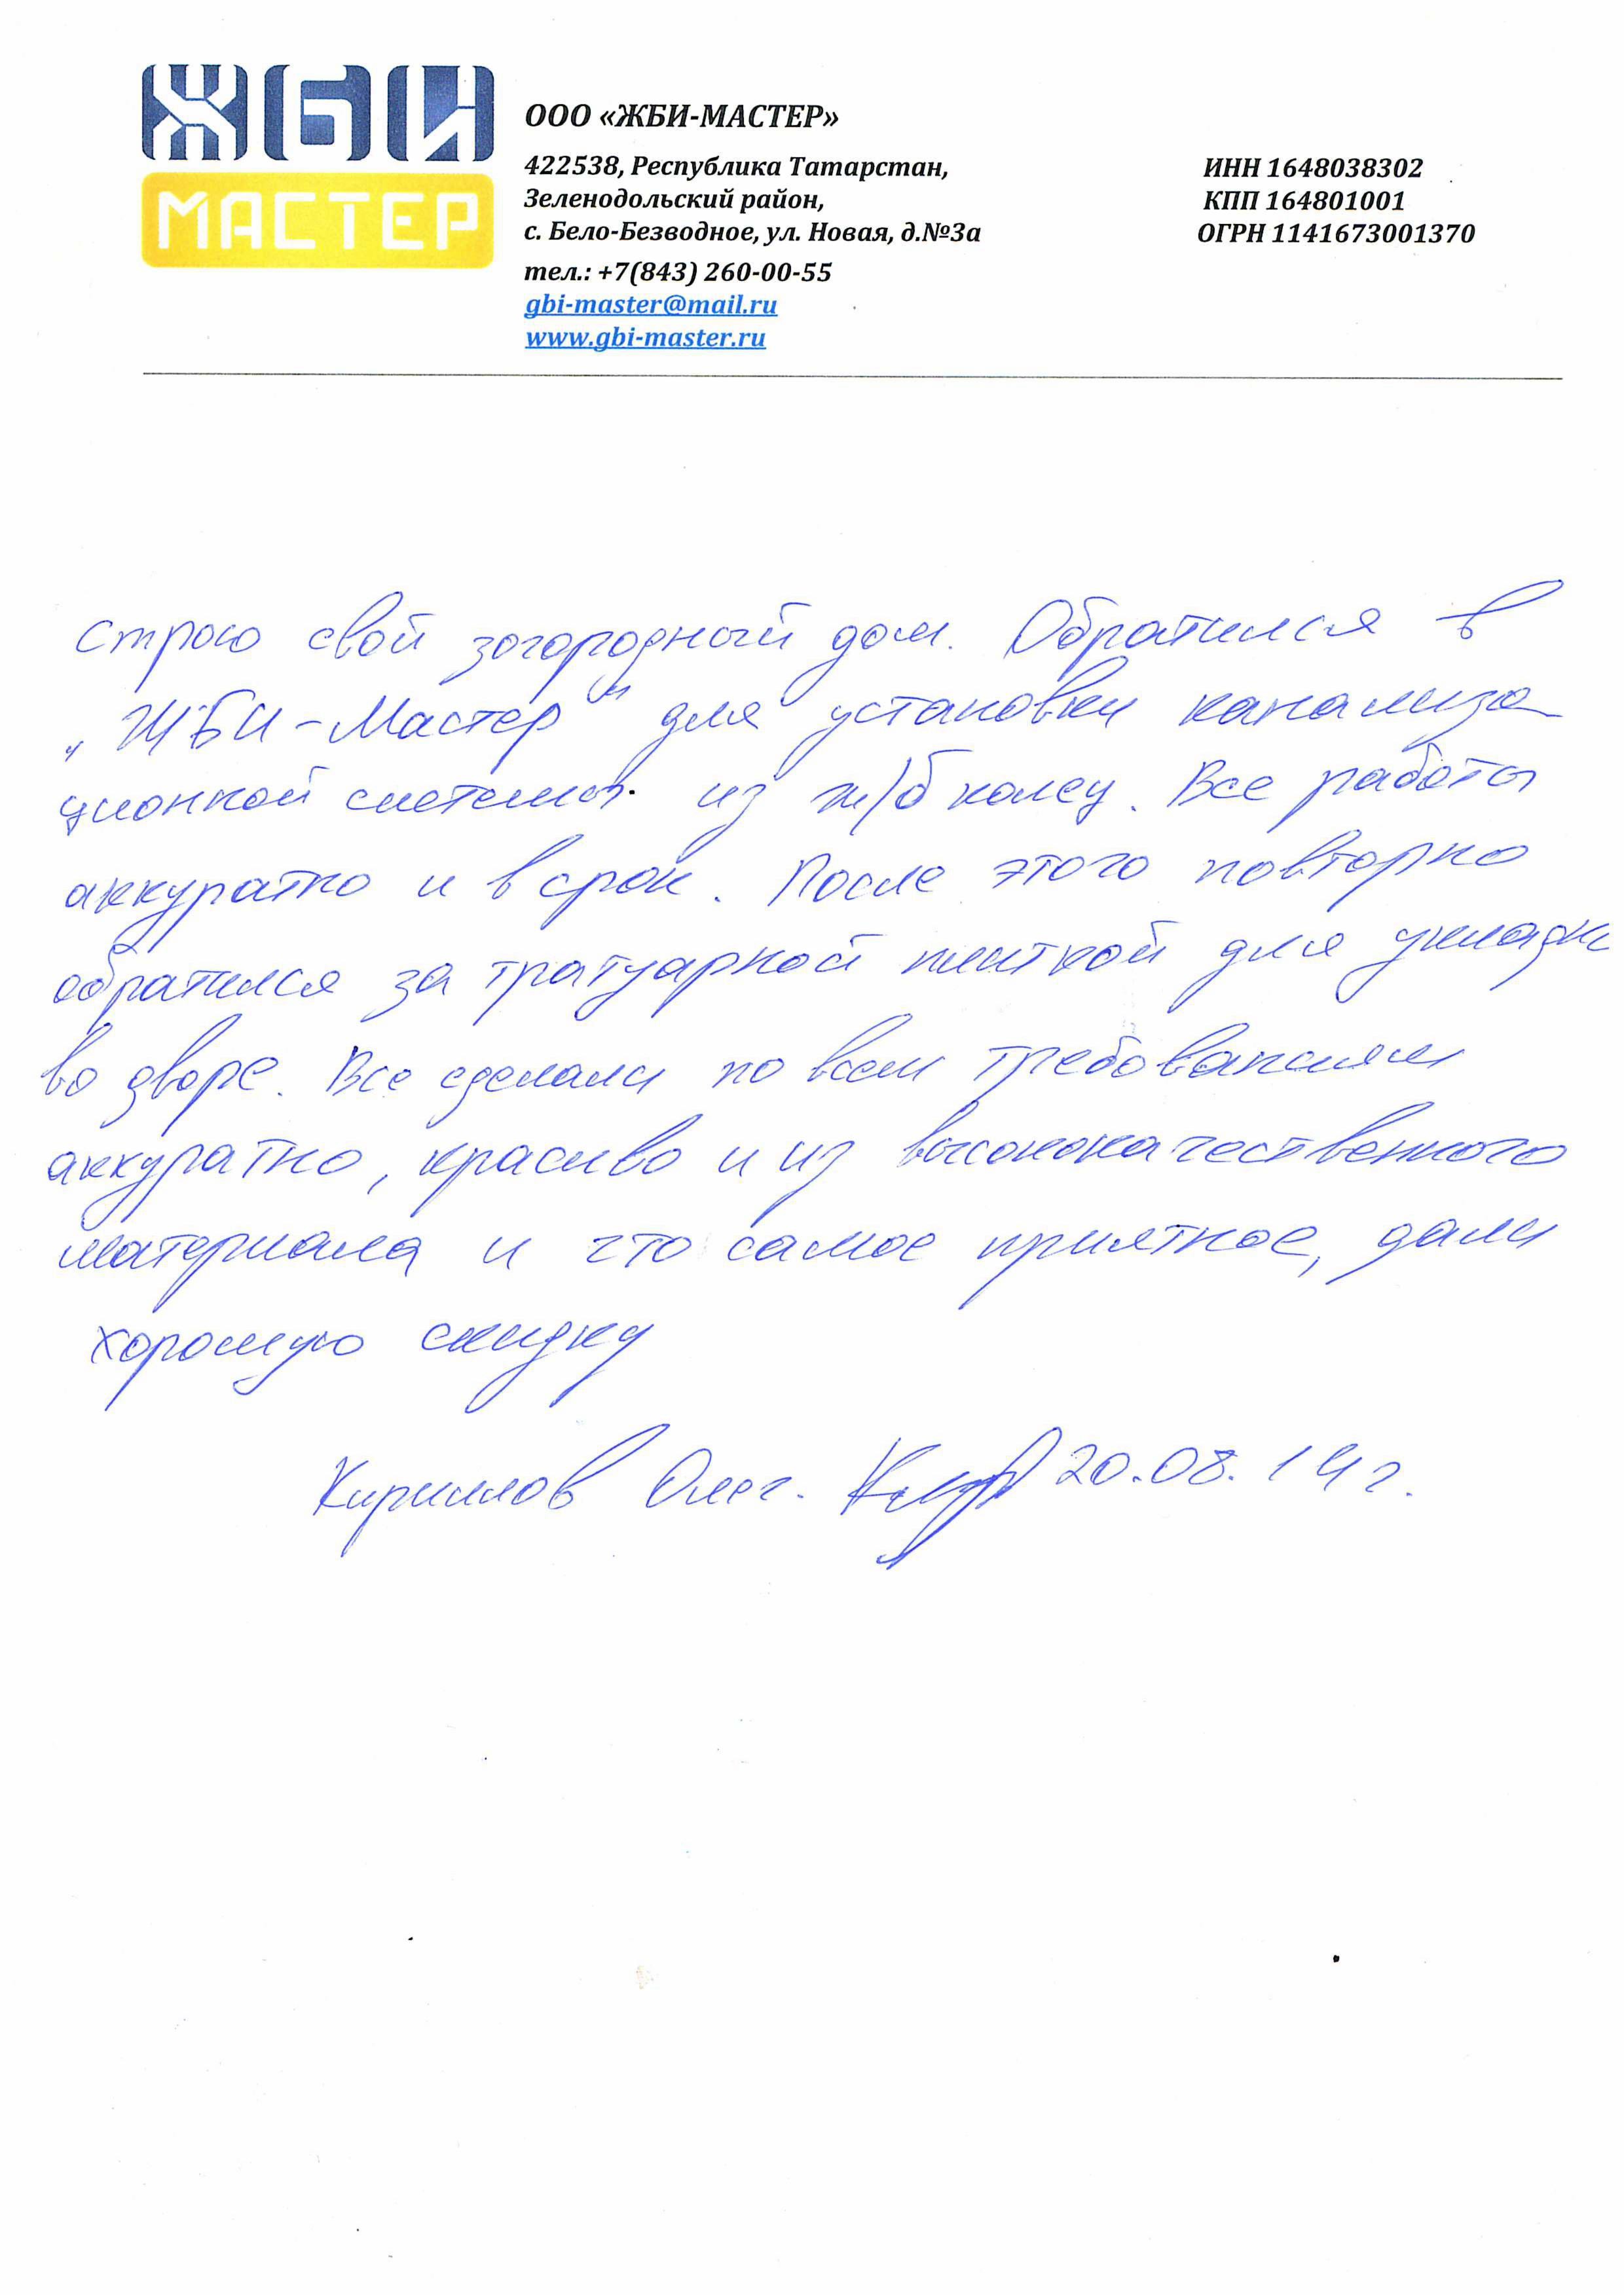 ЖБИ
МАСТЕР
ООО «ЖБИ-МАСТЕР»
422538, Республика Татарстан,
Зеленодольский район,
с. Бело-Безводное, ул. Новая, д.№3а
тел.: +7(843) 260-00-55
gbi-master@mail.ru
www.gbi-master.ru
ИНН 1648038302
КПП 164801001
ОГРН 1141673001370
Строю свой загородный дом. Обратился в
„ЖБИ-Мастер" для установки канализа
ционной системы из ж/б колец. Все работы
аккуратно и в срок. После этого повторно
обратился за тратуарной плиткой для укладки
во дворе. Все сделали по всем требованиям
аккуратно, красиво и из высококачественного
материала и что самое приятное, дали
хорошую скидку
Кириллов Олег. 20.08.14г.